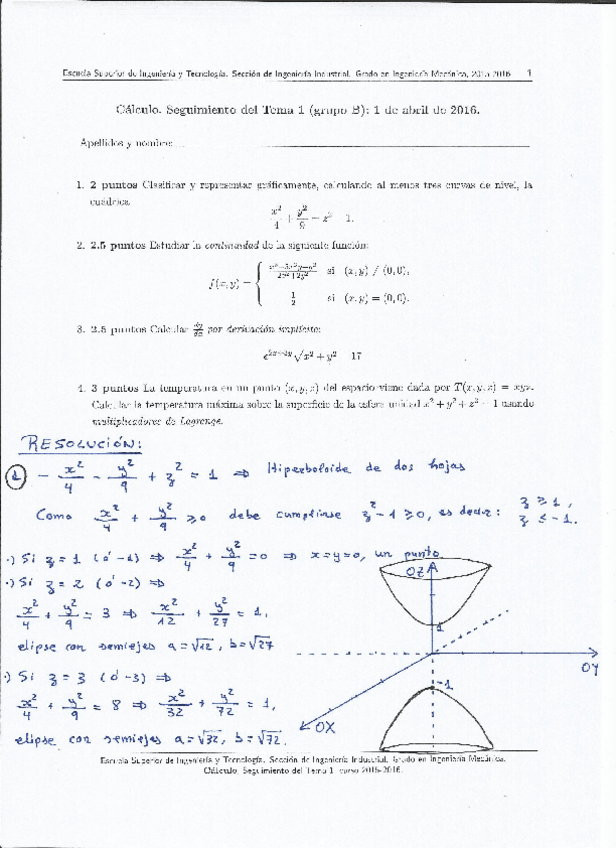 Escuela Superior de Ingeniería y Tecnología. Sección de Ingeniería Industrial. Grado en Ingeniería Mecánica, 2015-2016 1
Cálculo. Seguimiento del Tema 1 (grupo B): 1 de abril de 2016.
Apellidos y nombre:
1. 2 puntos Clasificar y representar gráficamente, calculando al menos tres curvas de nivel, la
cuádrica
x²/4 + y²/9 − z² 1.
2. 2.5 puntos Estudiar la continuidad de la siguiente función:
f(x,y) = { si (x,y) / (0,0),
1/2 si (x,y) = (0,0).
3. 2.5 puntos Calcular por derivación implícita:
√x² + y² 17
4. 3 puntos La temperatura en un punto (x,y,z) del espacio viene dada por T(x,y,z) = xyz.
Calcular la temperatura máxima sobre la superficie de la esfera unidad x² + y² + z² − 1 usando
multiplicadores de Lagrange.
RESOLUCIÓN:
1 − x²/4 − y²/9 + z² = 1 ⇒ Hiperboloide de dos hojas
Como x²/4 + y²/9 ≥ 0 debe cumplirse z² − 1 ≥ 0, es decir: z ≥ 1, z ≤ −1.
·) Si z = 1 (ó −1) ⇒ x²/4 + y²/9 = 0 ⇒ x = y = 0, un punto
·) Si z = 2 (ó −2) ⇒
x²/4 + y²/9 = 3 ⇒ x²/12 + y²/27 = 1,
elipse con semiejes a = √12, b = √27
·) Si z = 3 (ó −3) ⇒
x²/4 + y²/9 = 8 ⇒ x²/32 + y²/72 = 1,
elipse con semiejes a = √32, b = √72.
OZ
1
OY
−1
OX
Escuela Superior de Ingeniería y Tecnología. Sección de Ingeniería Industrial. Grado en Ingeniería Mecánica.
Cálculo. Seguimiento del Tema 1 curso 2015-2016.